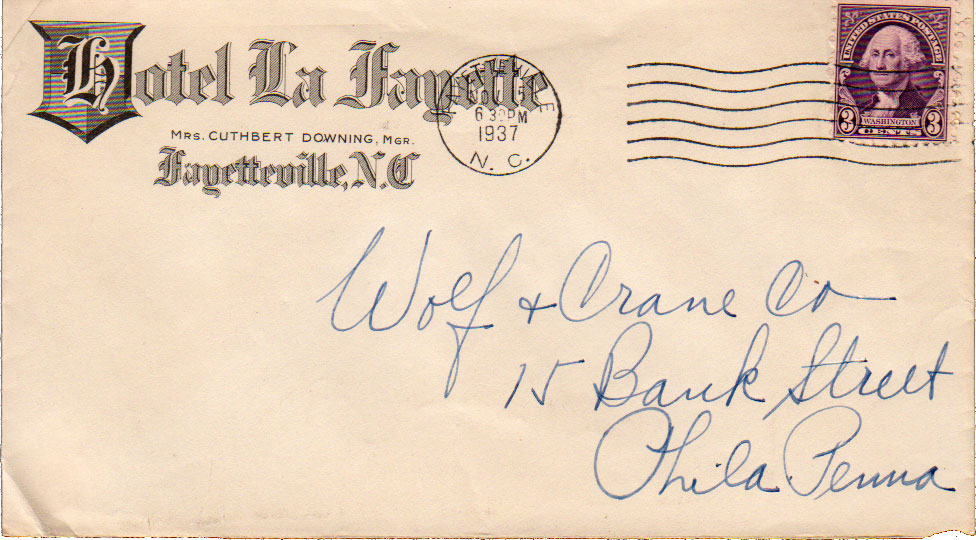 Hotel La Fayette
MRS. CUTHBERT DOWNING, MGR.
Fayetteville, N.C
FAYETTEVILLE
6 30 PM
1937
N. C.
UNITED STATES POSTAGE
WASHINGTON
3 CENTS 3
Wolf + Crane Co
15 Bank Street
Phila. Penna